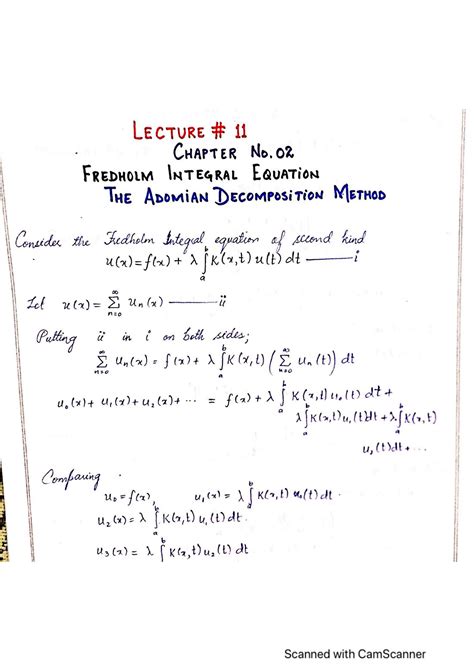 LECTURE # 11
CHAPTER No. 02
FREDHOLM INTEGRAL EQUATION
THE ADOMIAN DECOMPOSITION METHOD
Consider the Fredholm Integral equation of second kind
u(x) = f(x) + λ ∫_a^b K(x,t) u(t) dt — i
Let u(x) = Σ_{n=0}^∞ u_n(x) — ii
Putting ii in i on both sides;
Σ_{n=0}^∞ u_n(x) = f(x) + λ ∫_a^b K(x,t) ( Σ_{n=0}^∞ u_n(t) ) dt
u_0(x) + u_1(x) + u_2(x) + ... = f(x) + λ ∫_a^b K(x,t) u_0(t) dt +
λ ∫_a^b K(x,t) u_1(t) dt + λ ∫_a^b K(x,t)
u_2(t) dt + ...
Comparing
u_0 = f(x), u_1(x) = λ ∫_a^b K(x,t) u_0(t) dt.
u_2(x) = λ ∫_a^b K(x,t) u_1(t) dt.
u_3(x) = λ ∫_a^b K(x,t) u_2(t) dt
Scanned with CamScanner